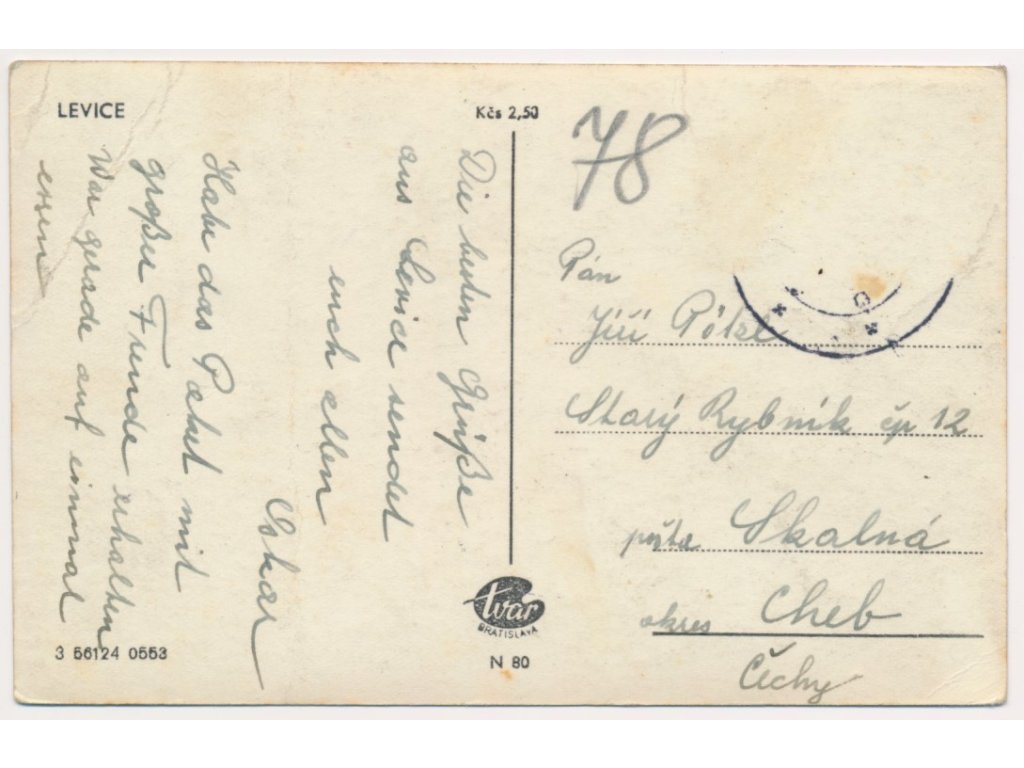 LEVICE
Kčs 2,50
78
Die besten Grüße
aus Levice sendet
euch allen
Oskar
Habe das Paket mit
großer Freude erhalten
War gerade auf einmal
essen
Pán
Jiří Pötzl
Starý Rybník čp 12
pošta Skalná
okres Cheb
Čechy
tvar
BRATISLAVA
3 56124 0553
N 80